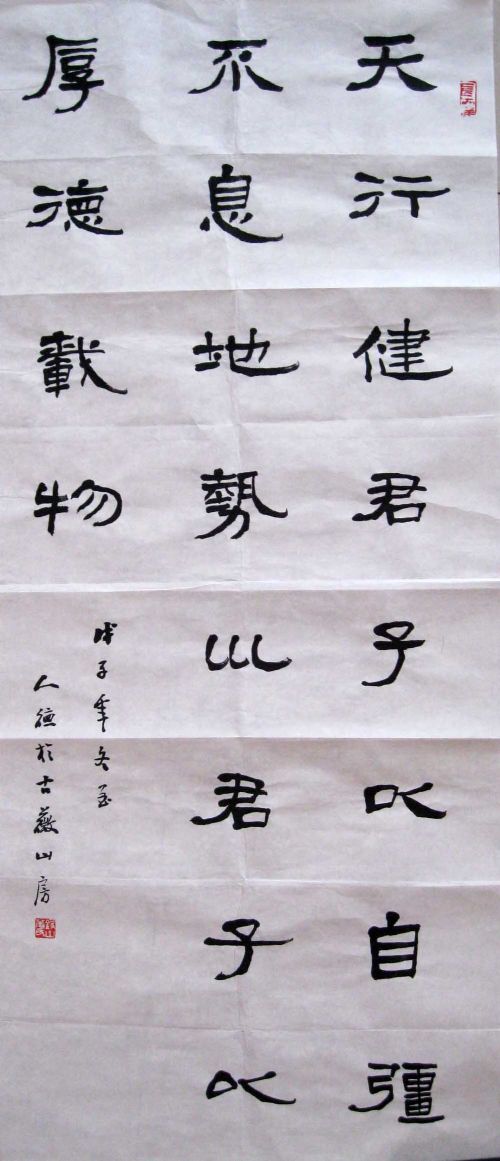 天行健君子以自彊
不息地勢巛君子以
厚德載物
戊子年冬至
人德於古薇山房